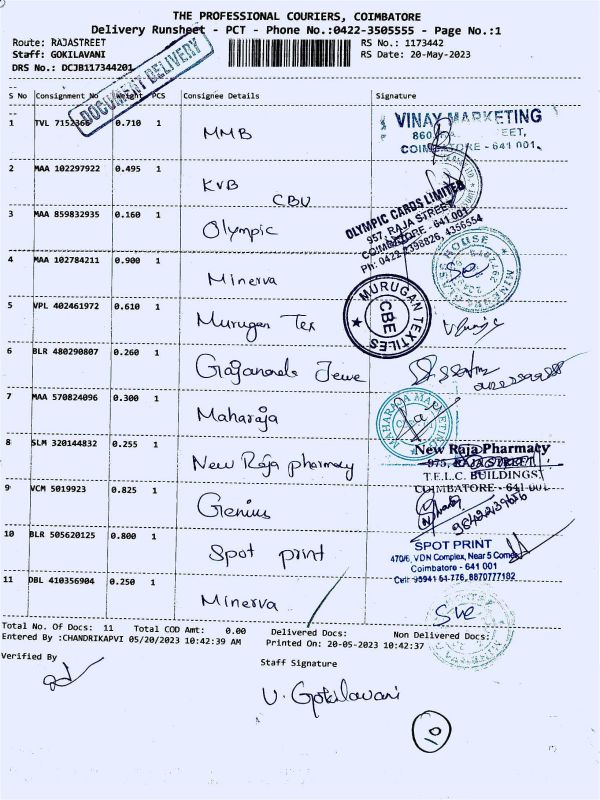 THE PROFESSIONAL COURIERS, COIMBATORE
Delivery Runsheet - PCT - Phone No.:0422-3505555 - Page No.:1
Route: RAJASTREET
RS No.: 1173442
Staff: GOKILAVANI
RS Date: 20-May-2023
DRS No.: DCJB117344201
DOCUMENT DELIVERY
S No Consignment No Weight PCS Consignee Details Signature
1 TVL 7152366 0.710 1 MMB
VINAY MARKETING
COIMBATORE - 641 001.
2 MAA 102297922 0.495 1 KVB
CBU
3 MAA 859832935 0.160 1 Olympic
OLYMPIC CARDS LIMITED
957, RAJA STREET,
COIMBATORE - 641 001
Ph: 0422-4398826, 4356554
4 MAA 102784211 0.900 1 Minerva
5 VPL 402461972 0.610 1 Murugan Tex
MURUGAN TEXTILES
CBE
6 BLR 480290807 0.260 1
7 MAA 570824096 0.300 1 Maharaja
8 SLM 320144832 0.255 1 New Raja pharmacy
New Raja Pharmacy
975, RAJA STREET
T.E.L.C. BUILDINGS
COIMBATORE - 641 001
9 VCM 5019923 0.825 1 Genius
10 BLR 505620125 0.800 1 Spot print
SPOT PRINT
470/6, VDN Complex, Near 5 Corner
Coimbatore - 641 001
Cell: 98941 51776, 8870777192
11 DBL 410356904 0.250 1 Minerva
Total No. Of Docs: 11 Total COD Amt: 0.00 Delivered Docs: Non Delivered Docs:
Entered By :CHANDRIKAPVI 05/20/2023 10:42:39 AM Printed On: 20-05-2023 10:42:37
Verified By
Staff Signature
V. Gokilavani
10